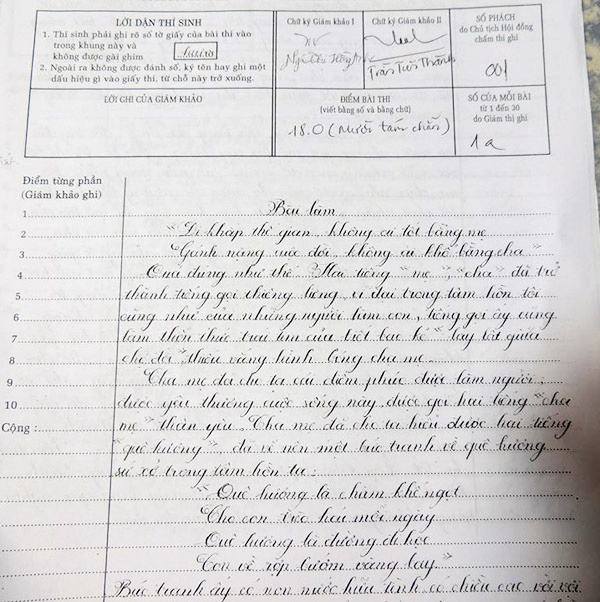 LỜI DẶN THÍ SINH
1. Thí sinh phải ghi rõ số tờ giấy của bài thi vào
trong khung này và
không được gài ghim
2. Ngoài ra không được đánh số, ký tên hay ghi một
dấu hiệu gì vào giấy thi, từ chỗ này trở xuống.
Chữ ký Giám khảo I
Chữ ký Giám khảo II
Trần Tiến Thành
SỐ PHÁCH
do Chủ tịch Hội đồng
chấm thi ghi
001
LỜI GHI CỦA GIÁM KHẢO
ĐIỂM BÀI THI
(viết bằng số và bằng chữ)
18.0 (Mười tám chẵn)
SỐ CỦA MỖI BÀI
từ 1 đến 30
do Giám thị ghi
1a
Điểm từng phần
(Giám khảo ghi)
1 Bài làm
2 "Đi khắp thế gian, không ai tốt bằng mẹ
3 Gánh nặng cuộc đời, không ai khổ bằng cha"
4 Quả đúng như thế. Hai tiếng "mẹ", "cha" đã trở
5 thành tiếng gọi thiêng liêng, vĩ đại trong tâm hồn tôi
6 cũng như của những người làm con, tiếng gọi ấy cũng
7 làm thổn thức trái tim của biết bao kẻ lay lắt giữa
8 chợ đời thiếu vắng hình bóng cha mẹ.
9 Cha mẹ đã cho ta cái diễm phúc được làm người,
10 được yêu thương cuộc sống này, được gọi hai tiếng "cha
Cộng : mẹ" thân yêu. Cha mẹ đã cho ta hiểu được hai tiếng
"quê hương", đã vẽ nên một bức tranh về quê hương
xứ sở trong tâm hồn ta:
"Quê hương là chùm khế ngọt
Cho con trèo hái mỗi ngày
Quê hương là đường đi học
Con về rợp bướm vàng bay"
Bức tranh ấy có non nước hữu tình có chiều cao vời vợi